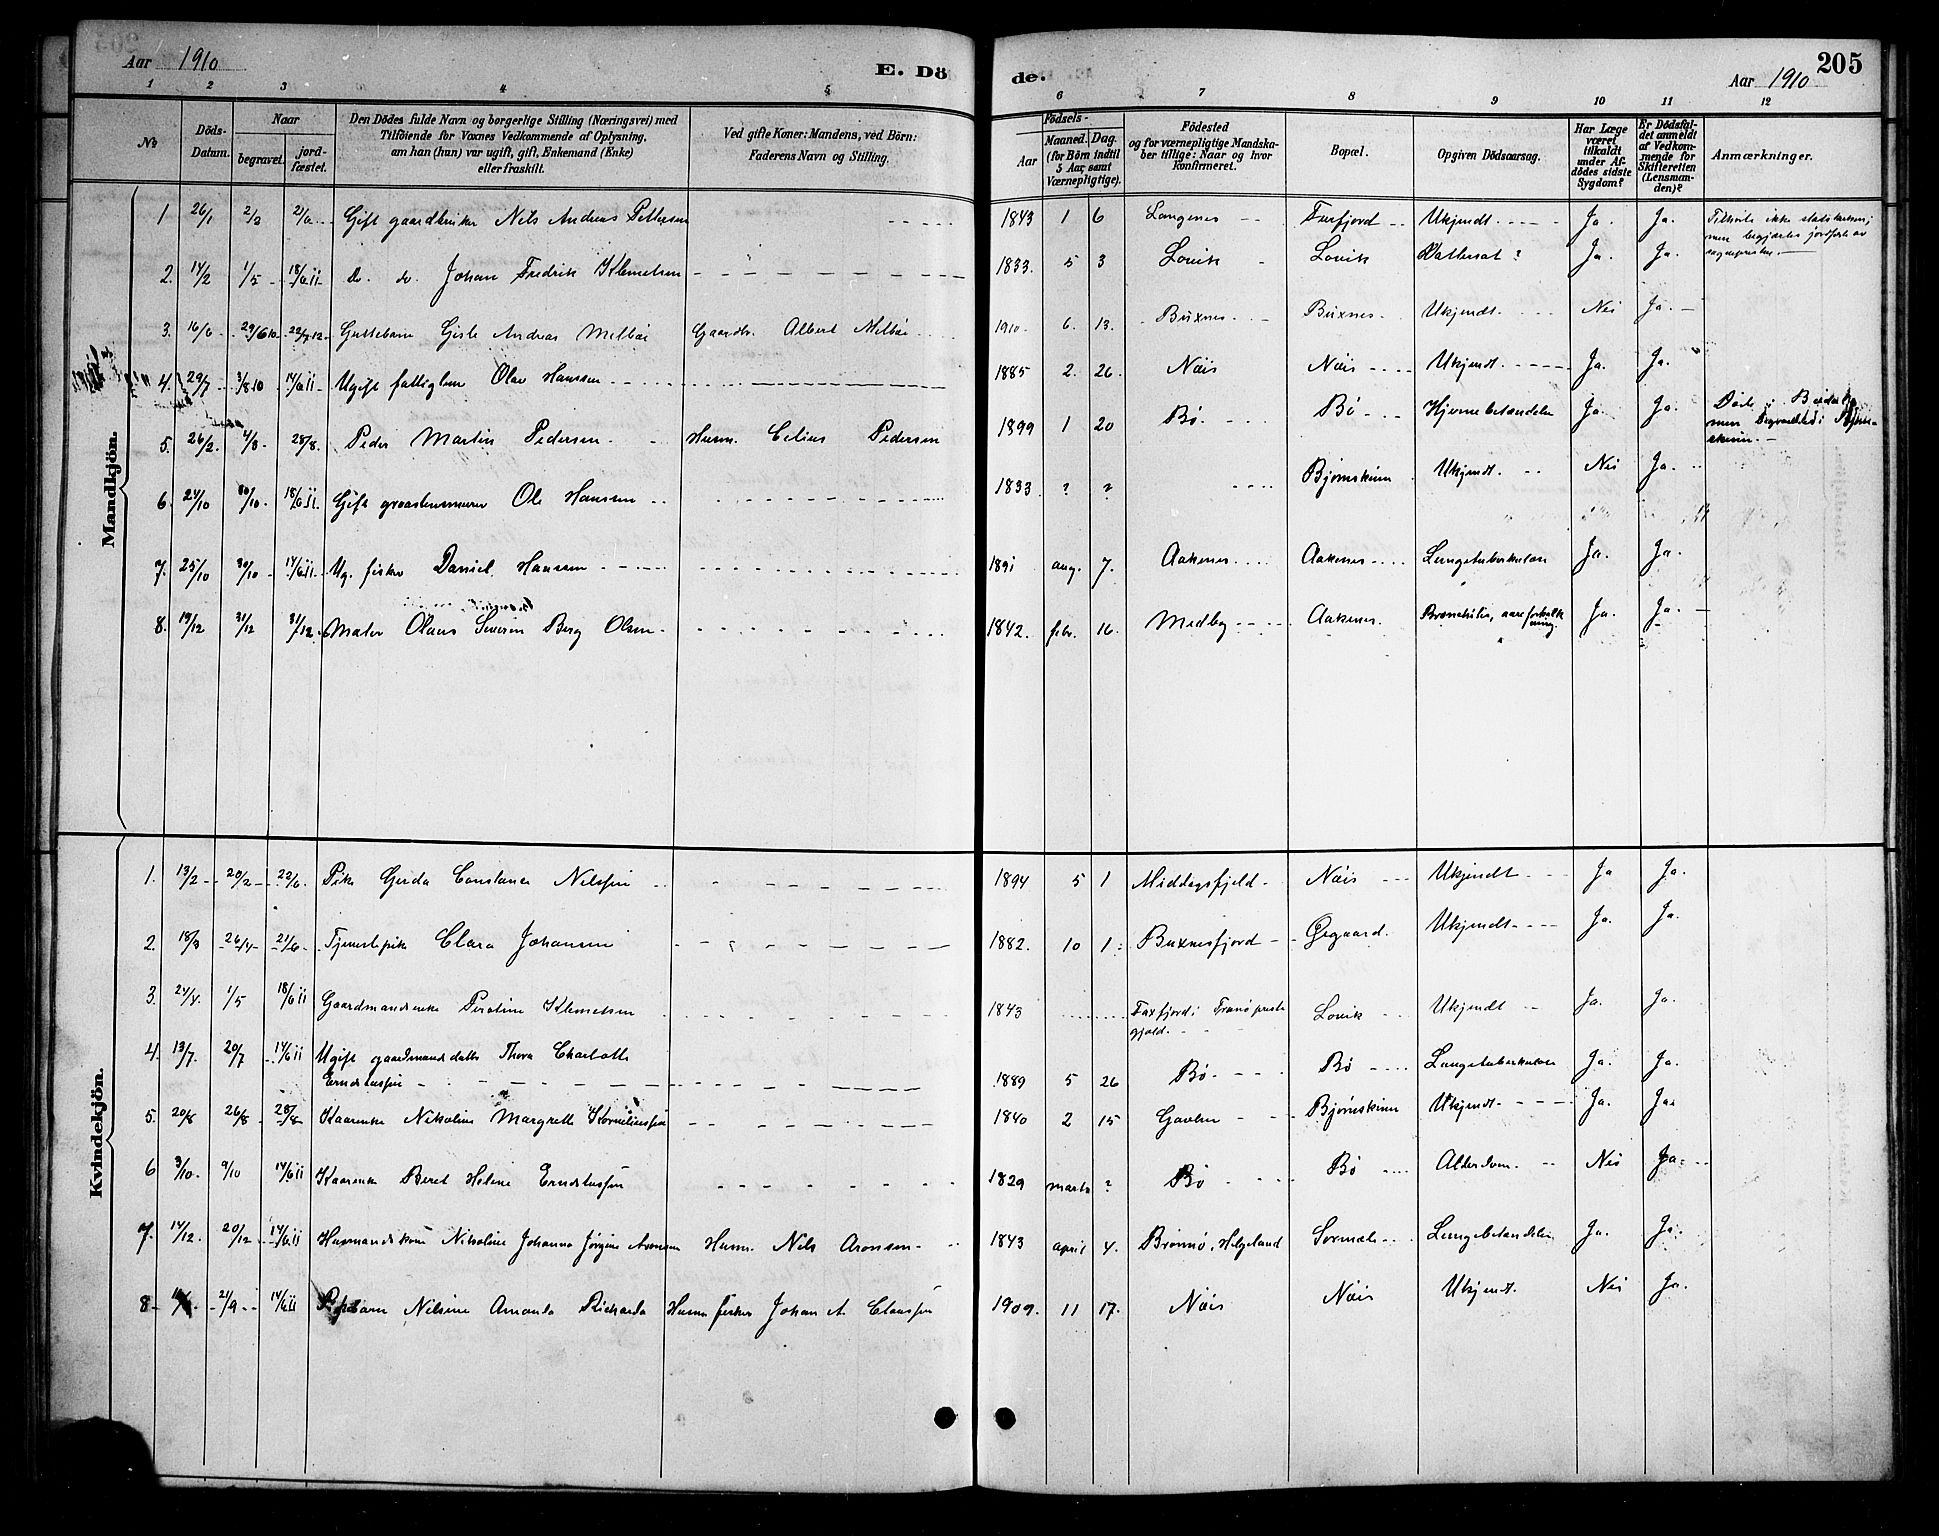 Aar 1910
E. Döde.
Aar 1910
205
1 2 3 4 5 6 7 8 9 10 11 12
No
Döds-Datum.
Naar
begravet.
jordfæstet.
Den Dödes fulde Navn og borgerlige Stilling (Næringsvei) med
Tilföiende for Voxnes Vedkommende af Oplysning,
om han (hun) var ugift, gift, Enkemand (Enke)
eller fraskilt.
Ved gifte Koner: Mandens, ved Börn:
Faderens Navn og Stilling.
Födsels-
Aar
Maaned. Dag.
(for Börn indtil
5 Aar, samt
Værnepligtige).
Födested
og for værnepligtige Mandskaber tillige: Naar og hvor
konfirmeret.
Bopæl.
Opgiven Dödsaarsag.
Har Læge
været
tilkaldt
under Afdödes sidste
Sygdom?
Er Dödsfaldet anmeldt
af Vedkommende for
Skifteretten
(Lensmanden)?
Anmærkninger.
Mandkjön.
1 26/1 2/2 2/6 Gift gaardbruker Nils Andreas Pettersen 1843 1 6 Langenes Faxfjord Ukjendt. Ja. Ja. Tilhörte ikke statskirken;
men begjærtes jordfæstet av
sogneprsten.
2. 14/2 1/5 18/6 11 Do. do. Johan Fredrik Klemetsen 1833. 5 3 Lovik Lovik Vattersot? Ja. Ja.
3. 16/6 29/6 10 22/9 12 Guttebarn Gisle Andreas Melböe Gaardbr. Albert Melböe 1910 6. 13. Buxnes Buxnes Ukjendt. Nei Ja.
4. 29/7 3/8 10 14/6 11 Ugift fattiglem Olav Hansen 1885 2. 26. Nöis Nöis Ukjendt. Ja. Ja.
5. 26/2 4/3 28/8. Peder Martin Pedersen Husm. Celius Pedersen 1899 1 20 Bö. Bö Hjernebetændelse Ja. Ja.
6. 24/10 30/10 18/6 11. Gift graastensmurer Ole Hansen 1833 ? ? Bjørnskinn Ukjendt. Nei Ja.
7. 25/10 30/10 14/6 11. Ug. fisker Daniel Hansen 1891 aug. 7. Aakenes Aakenes Lungetuberkulose Ja. Ja.
8. 19/12 31/12 31/12. Maler Olaus Severin Berg Olsen 1842. febr. 16. Medby Aakenes. Bronchitis, aareforkalkning. Ja. Ja.
Kvindekjön.
1. 13/2 20/2 22/6 Pike Gerda Constance Nilssen 1894 5 1 Middagsfjeld Nöis Ukjendt Ja Ja.
2. 18/3 26/4 21/6 Tjenestepike Clara Johansen 1882. 10 1 Buxnesfjord Øvgaard. Ukjendt Ja. Ja.
3. 24/4. 1/5 18/6 11 Gaardmandsenke Peroline Klemetsen 1843 Faxfjord i Tranö prestegjæld. Lovik Ukjendt Ja. Ja.
4. 13/7. 20/7 14/6 11 Ugift gaardmandsdatter Thora Charlotte
Erndtussen 1889 5 26 Bö. Bö Lungetuberkulose Ja. Ja.
5. 20/8 26/8 28/8 Kaarenke Nikoline Margrethe Korneliussen 1840 2 15 Gavlen Bjørnskinn Ukjendt. Ja. Ja.
6 3/10. 9/10 14/6 11 Kaarenke Beret Helene Erndtussen 1829 marts ? Bö Bö Alderdom. Nei Ja.
7. 14/12. 20/12 14/6 11 Husmandskone Nikoline Johanna Jörgine Aronsen Husm. Nils Aronsen 1843 april 4. Brönnö, Helgeland Sørmæle Lungebetændelse Ja. Ja.
8 21/9 14/6 11 Pikebarn Nilsine Amanda Rikarda Husm. fisker Johan A. Claussen 1909. 11 17. Nöis Nöis Ukjendt. Nei Ja.